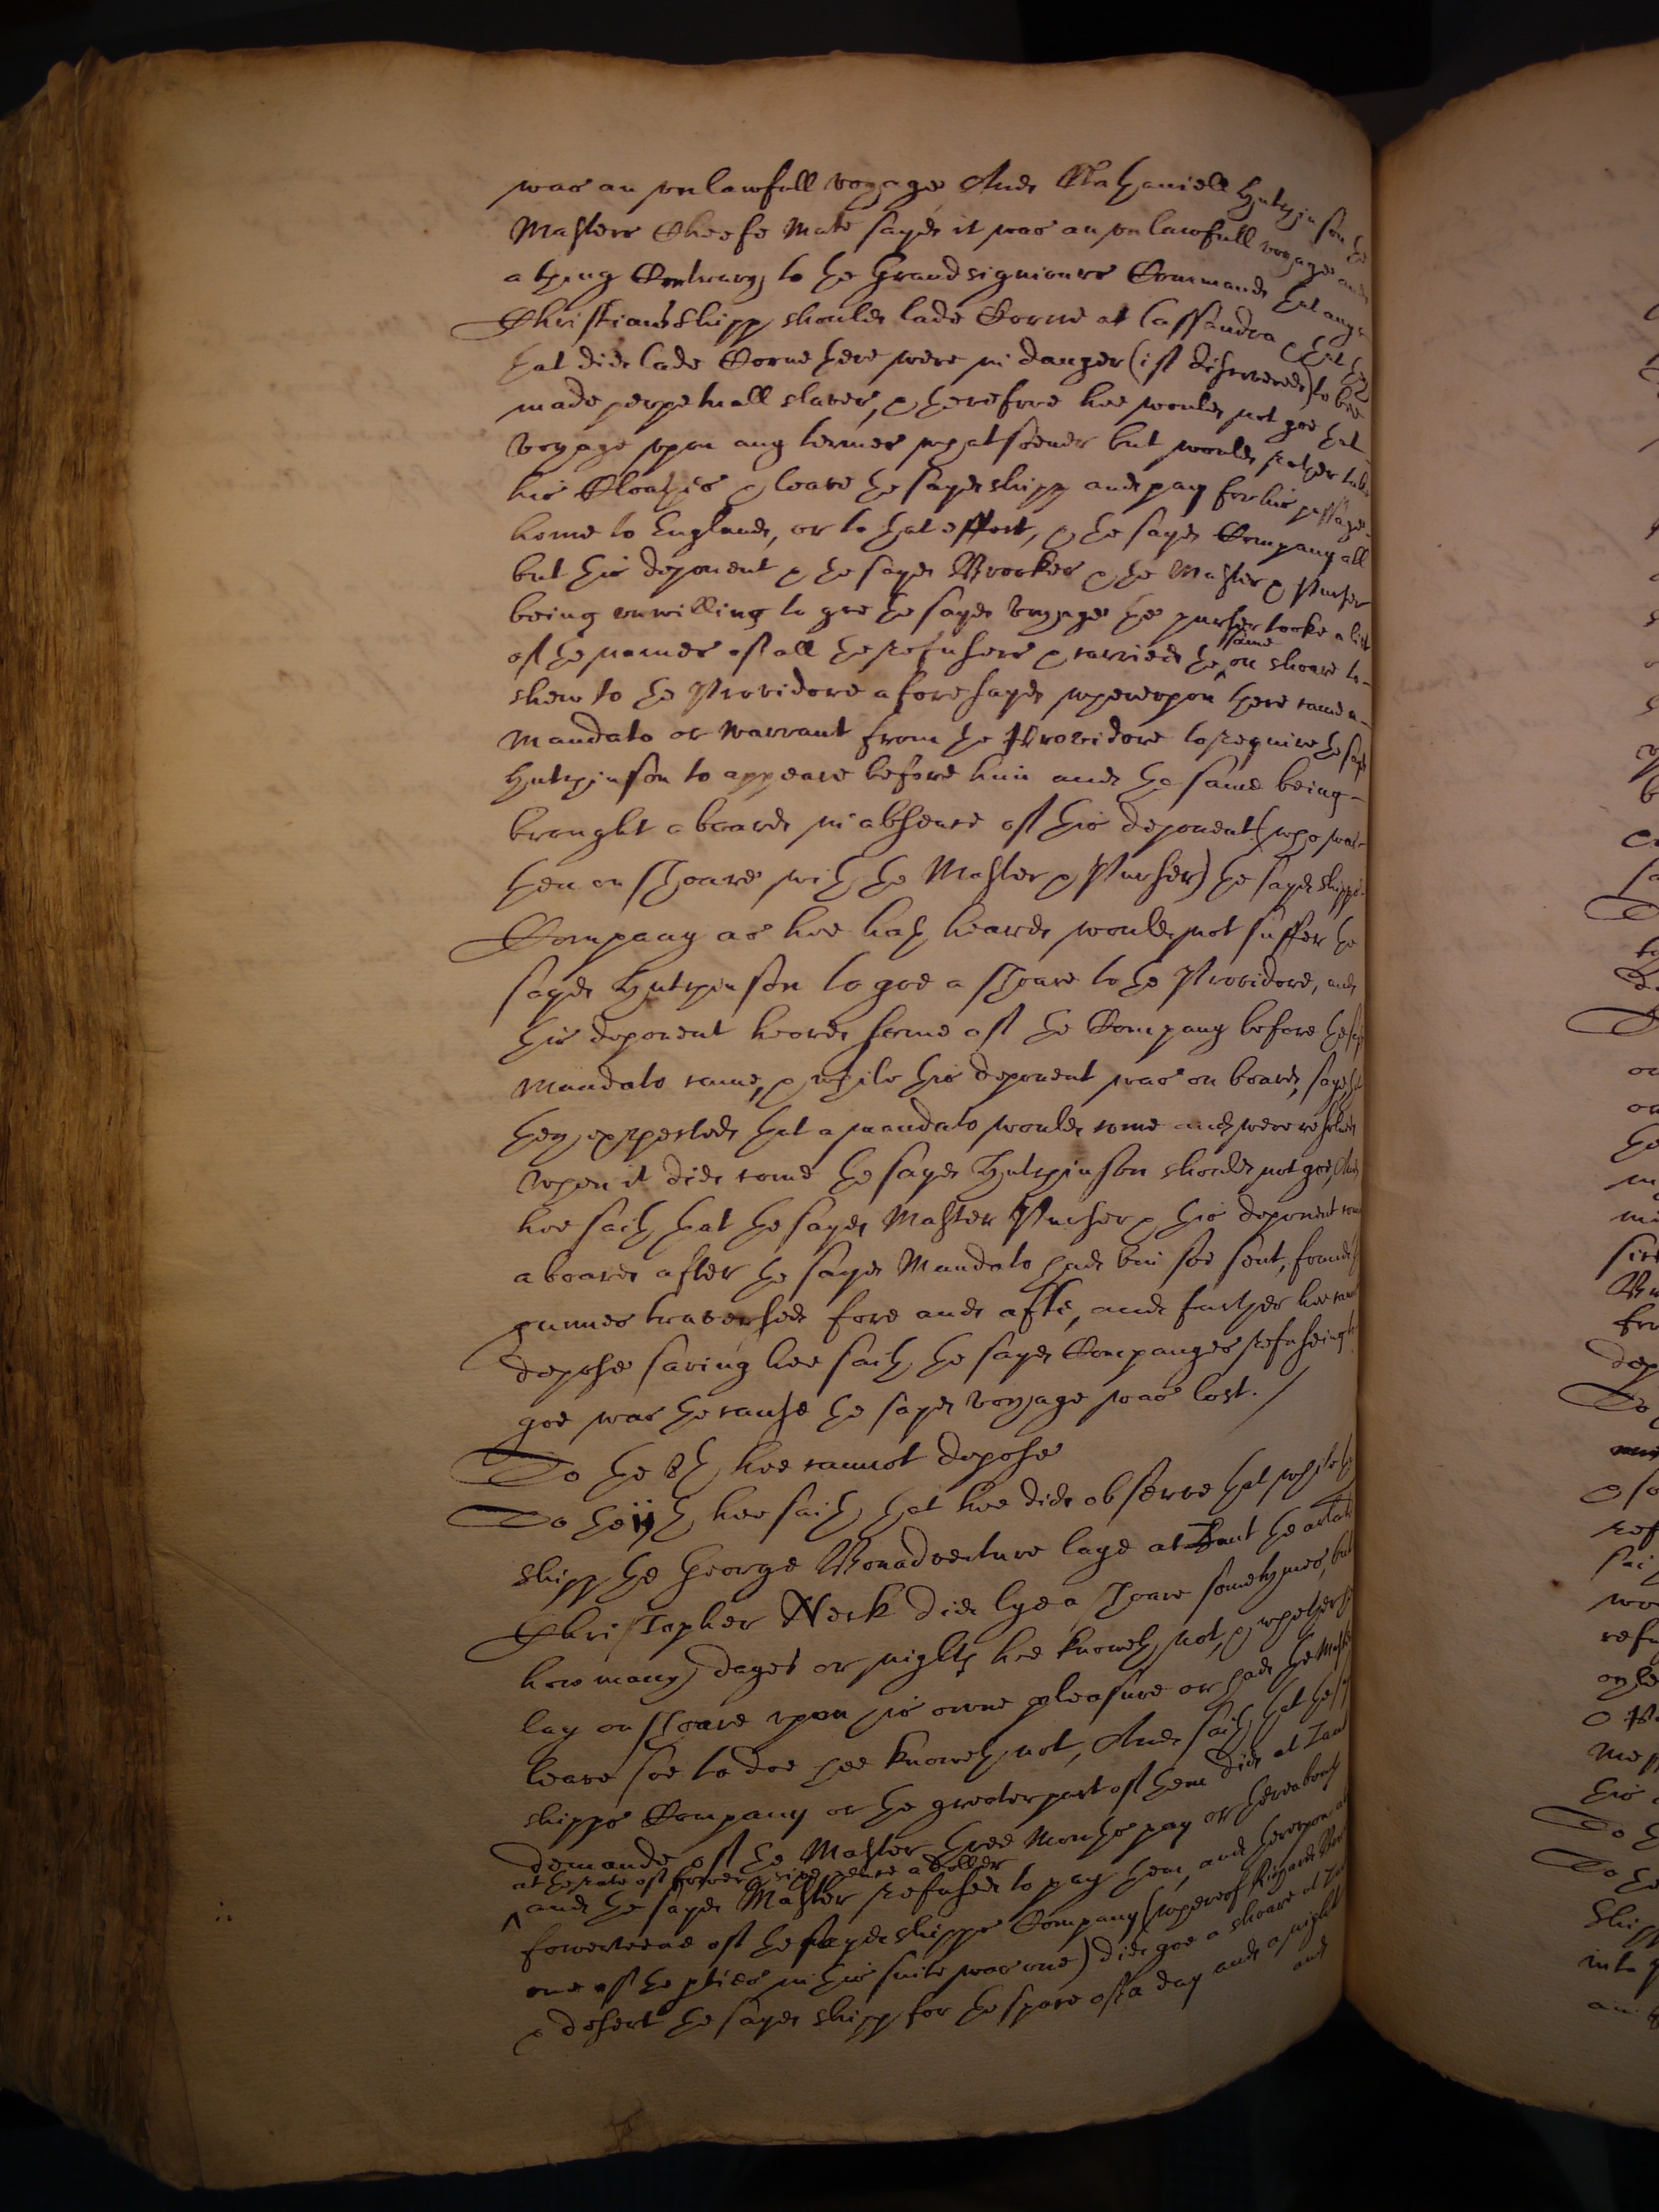 was an unlawfull voyage, And Nathaniell Hutchinson the
Masters Cheefe Mate sayd it was an unlawfull voyage and
a thing Contrary to the Grandsigniours Commands that any
Christians shipp should lade Corne at Cassandra & that they
that did lade Corne there were in danger (if discovered) to bee
made perpetuall slaves, & therefore hee would not goe that
voyage upon any termes whatsoever but would rather take
his Cloathes & leave the sayd shipp and pay for his passage
home to England, or to that effect, & the sayd Company all
but this deponent & the sayd Brookes & the Master & Purser
being unwilling to goe the sayd voyage the purser tooke a list
of the names of all the refusers & carried the same on shoare to
shew to the Providore aforesayd whereupon there came a
Mandato or warrant from the Providore to require the sayd
Hutchinson to appeare before him and the same being
brought aboard in absence of this deponent (who was
then on shoare with the Master & Purser) the sayd shipps
Company as hee hath heard would not suffer the
sayd Hutchinson to goe a shoare to the Providore, and
this deponent heard some of the Company before the sayd
Mandato came, & while this deponent was on board, say that
they expected that a mandato would come and were resolved
when it did come the sayd Hutchinson should not goe, And
hee saith that the sayd Master Purser & this deponent comeing
aboard after the sayd Mandato had bin soe sent, found the
gunnes traversed fore and afte, and further hee cannot
depose saving hee saith the sayd Companyes refuseing to
goe was the cause the sayd voyage was lost. /
To the 8th hee cannot depose
To the ijth hee saith that hee did observe that while the
shipp the George Bonadventure laye at Zant the arlate
Christopher Neck did lye a shoare sometymes, but
how many dayes or nights hee knoweth not, & whether hee
lay on shoare upon his owne pleasure or had the Masters
leave soe to doe hee knoweth not, And saith that the sayd
shipps Company or the greater part of them did at Zant
demande of the Master three Monthes pay or thereabouts
at the rate of fower & sixe pence a doller
and the sayd Master refused to pay them, and thereupon
foureteene of the sayd shipps Company (whereof Richard
one of the parties in this suite was one) did goe a shoare at Zant
& desert the sayd shipp for the space of a day and a night
and